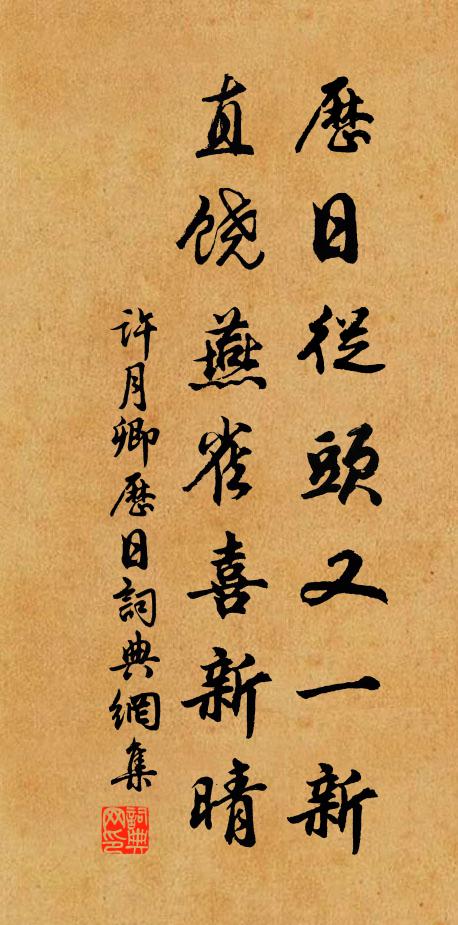 歷日從頭又一新
直饒燕雀喜新晴
許月卿歷日詞典網集
詞典网印